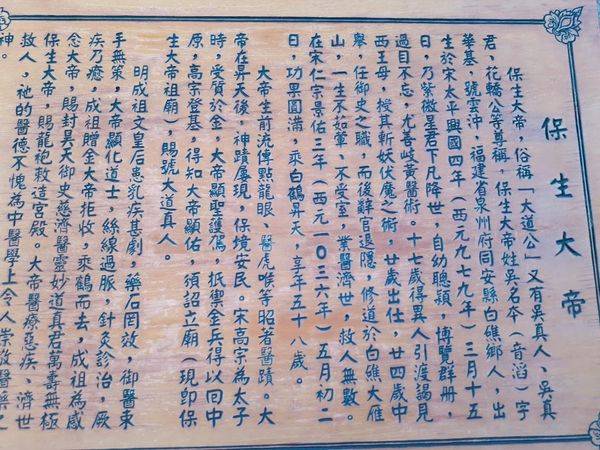 保生大帝
保生大帝，俗稱「大道公」又有吳真人、吳真
君、花轎公等尊稱，保生大帝姓吳名本（音滔）字
華基，號雲沖，福建省泉州府同安縣白礁鄉人，出
生於宋太平興國四年（西元九七九年）三月十五
日，乃紫微星君下凡降世，自幼聰穎，博覽群册，
過目不忘，尤善岐黃醫術。十七歲得異人引渡謁見
西王母，授其斬妖伏魔之術，廿歲出仕，廿四歲中
舉，任御史之職，而後辭官退隱，修道於白礁大雁
山，一生不茹葷、不受室，業醫濟世，救人無數。
在宋仁宗景佑三年（西元一0三六年）五月初二
日，功果圓滿，乘白鶴昇天，享年五十八歲。
大帝生前流傳點龍眼、醫虎喉等昭著醫蹟。大
帝在昇天後，神蹟屢現，保境安民。宋高宗為太子
時，受質於金，大帝顯聖護駕，抵禦金兵得以回中
原，高宗登基，得知大帝顯佑，頒詔立廟（現即保
生大帝祖廟），賜號大道真人。
明成祖文皇后患乳疾甚劇，藥石罔效，御醫束
手無策，大帝顯化道士，絲線過脈，針灸診治，厥
疾乃癒，成祖贈金大帝拒收，乘鶴而去，成祖為感
念大帝，賜封昊天御史慈濟醫靈妙道真君萬壽無極
保生大帝，賜龍袍敕造宮殿。大帝醫療惡疾、濟世
救人，祂的醫德不愧為中醫學上令人崇敬醫藥之
神。